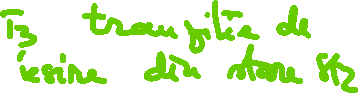 T3 tranziția de
iesire din stare St2